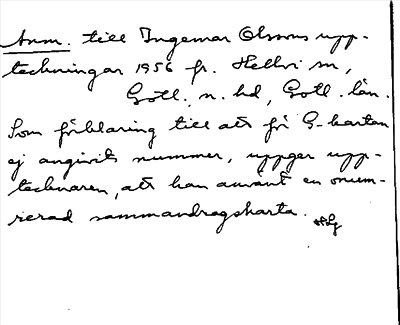 Anm. till Ingemar Olssons upp-
teckningar 1956 fr. Hellvi sn,
Gotl. n. hd, Gotl. län.
Som förklaring till att på G-kartan
ej angivits nummer, uppger upp-
tecknaren, att han använt en onum-
rerad sammandragskarta.